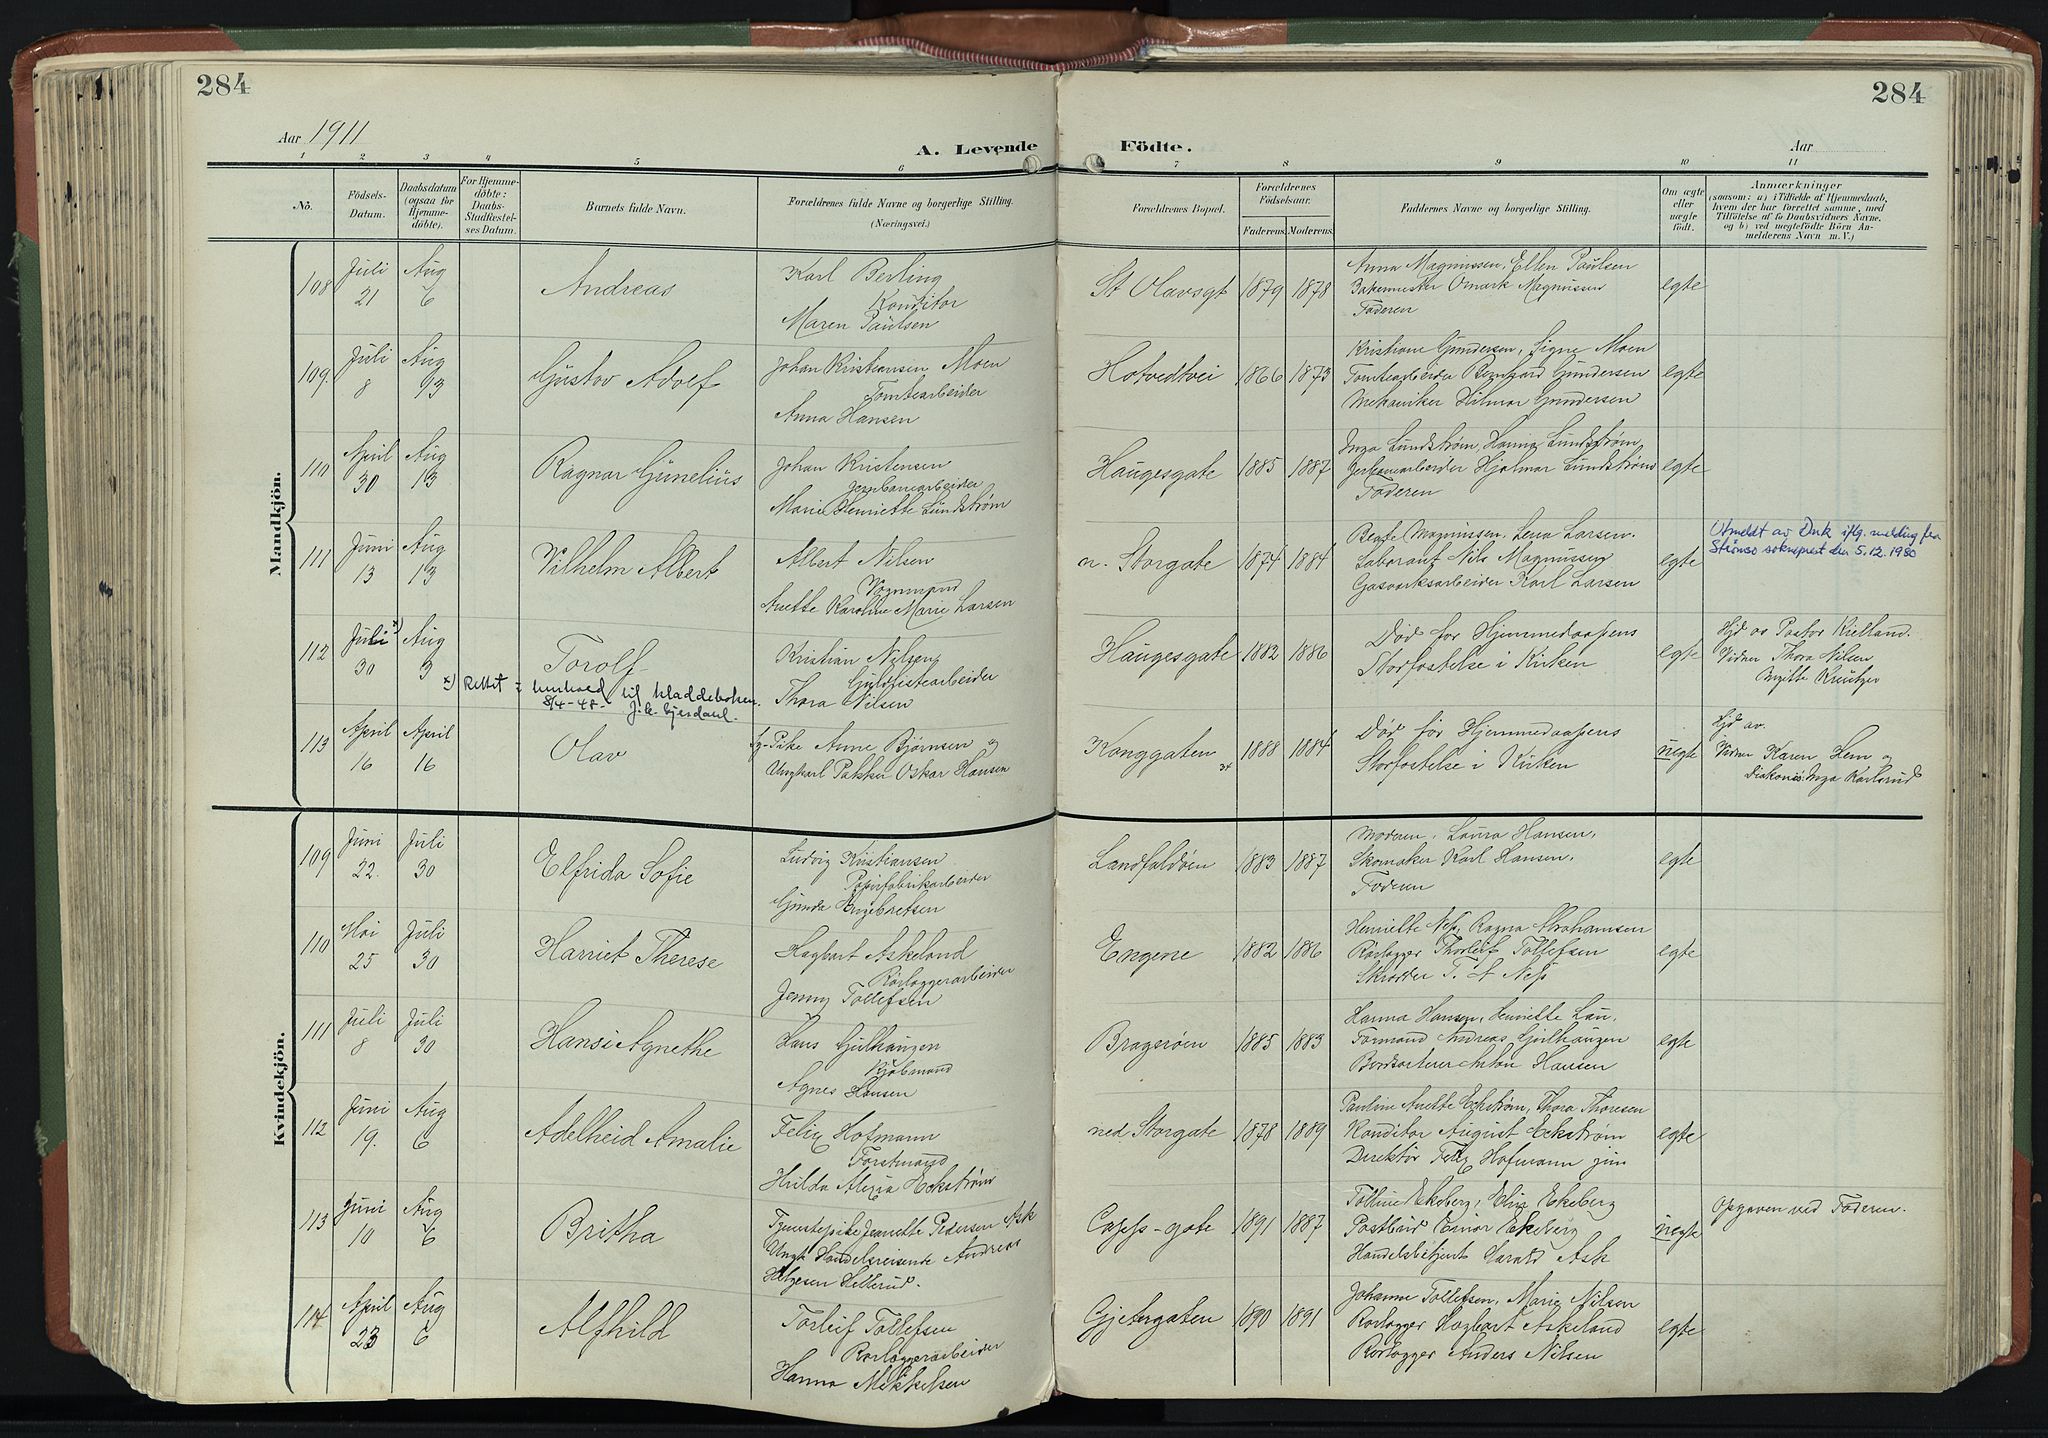 284
284
Aar 1911
A. Levende
Födte.
Aar
1 2 3 4 5 6 7 8 9 10 11
Nô.
Födsels-
Datum.
Daabsdatum
(ogsaa for
Hjemme-
döbte).
For Hjemme-
döbte:
Daabs-
Stadfæstel-
ses Datum.
Barnets fulde Navn.
Forældrenes fulde Navne og borgerlige Stilling.
(Næringsvei.)
Forældrenes Bopæl.
Forældrenes
Födselsaar.
Faderens. Moderens.
Faddernes Navne og borgerlige Stilling.
Om ægte
eller
uægte
födt.
Anmærkninger
(saasom: a) i Tilfælde af Hjemmedaab,
hvem der har forrettet samme, med
Tilföielse af to Daabsvidners Navne,
og b) ved uægtefödte Börn An-
melderens Navn m. V.)
Mandkjön.
108
Juli
21
Aug
6
Andreas
Karl Berling
Konditor
Maren Paulsen
St Olavsgt
1879
1878
Anna Magnussen, Ellen Paulsen
Bakermester Omark Magnussen
Faderen
egte
109.
Juli
8
Aug
13
Gustav Adolf
Johan Kristiansen Moen
Tomtearbeider
Anna Hansen
Hotvedtvei
1866
1873
Kristiane Gundersen, Signe Moen
Tomtearbeider Bernhard Gundersen
Mekaniker Hilmar Gundersen
egte
110
April
30
Aug
13
Ragnar Gunelius
Johan Kristensen
Jernbanearbeider
Marie Henriette Lundstrøm
Haugesgate
1885
1887
Inga Lundstrøm, Hanna Lundstrøm
Jernbanearbeider Hjalmar Lundstrøm
Faderen
egte
111
Juni
13
Aug
13
Vilhelm Albert
Albert Nilsen
Vognmand
Anette Karoline Marie Larsen
ø. Storgate
1874
1884
Beate Magnussen, Lena Larsen.
Laborant Nils Magnussen
Gasverksarbeider Karl Larsen
egte
Utmeldt av Dnk iflg. melding fra
Strømsø sokneprest den 5.12.1980
112
Juli x)
30
Aug
3
Torolf
Kristian Nilsen
Guldlistearbeider
Thora Nilsen
Haugesgate
1882
1886
Død før Hjemmedaapens
Stadfæstelse i Kirken
egte
Hjd av Pastor Kielland.
Vidner Thora Nilsen
Birgitte Kreutzer
x) Rettet i henhold til kladdeboken.
8/4-48-
113
April
16
April
16
Olav
Pike Anne Bjørnsen og
Ungkarl Pakker Oskar Hansen
Konggaten
34
1888
1884
Død før Hjemmedaapens
Stadfæstelse i Kirken
uegte
Hjd av.
Vidner Karen Hem og
Diakonis: Inga Karlsrud
Kvindekjön.
109
Juni
22.
Juli
30
Elfrida Sofie
Ludvig Kristiansen
Papirfabrikarbeider
Gunda Engebretsen
Landfaldøen
1883
1887
Moderen, Laura Hansen,
Skomaker Karl Hansen,
Faderen
egte
110
Mai
25
Juli
30
Harriet Therese
Hagbart Askeland
Rørlæggerarbeider
Jenny Tollefsen
Engene
1882
1886
Henriette Næss, Ragna Abrahamsen
Rørlægger Thorleif Tollefsen
Skrædder T. A Næss
egte
111
Juli
8
Juli
30
Hansi Agnethe
Hans Gulhaugen
Kjøbmand
Agnes Hansen
Bragerøen
1885
1883
Hanna Hansen, Henriette Lau,
Formand Andreas Gulhaugen
Bordsorterer Anton Hansen
egte
112
Juni
19.
Aug
6
Adelheid Amalie
Felix Hofmann
Forstmand
Hulda Alexia Eckstrøm
ned Storgate
1878
1889
Pauline Anette Eckstrøm, Thora Thoresen
Konditor August Eckstrøm
Direktør Felix Hofmann jun
egte
113
Juni
10
Aug
6
Britha
Tjenestepike Jeanette Pedersen Ask
Ungk Handelsreisende Andreas
Helgesen Hellerud.
Capps-gate
1891
1887
Tolline Ekeberg, Elise Ekeberg
Postbud Einar Ekeberg
Handelsbetjent Harald Ask
uegte
Opgaven ved Faderen.
114
April
23
Aug
6
Alfhild
Torleif Tollefsen
Rørlæggerarbeider
Hanna Mikkelsen
Gjetergaten
1890
1891
Johanne Tollefsen, Marie Nilsen
Rørlægger Hagbart Askeland
Rørlægger Anders Nilsen
egte